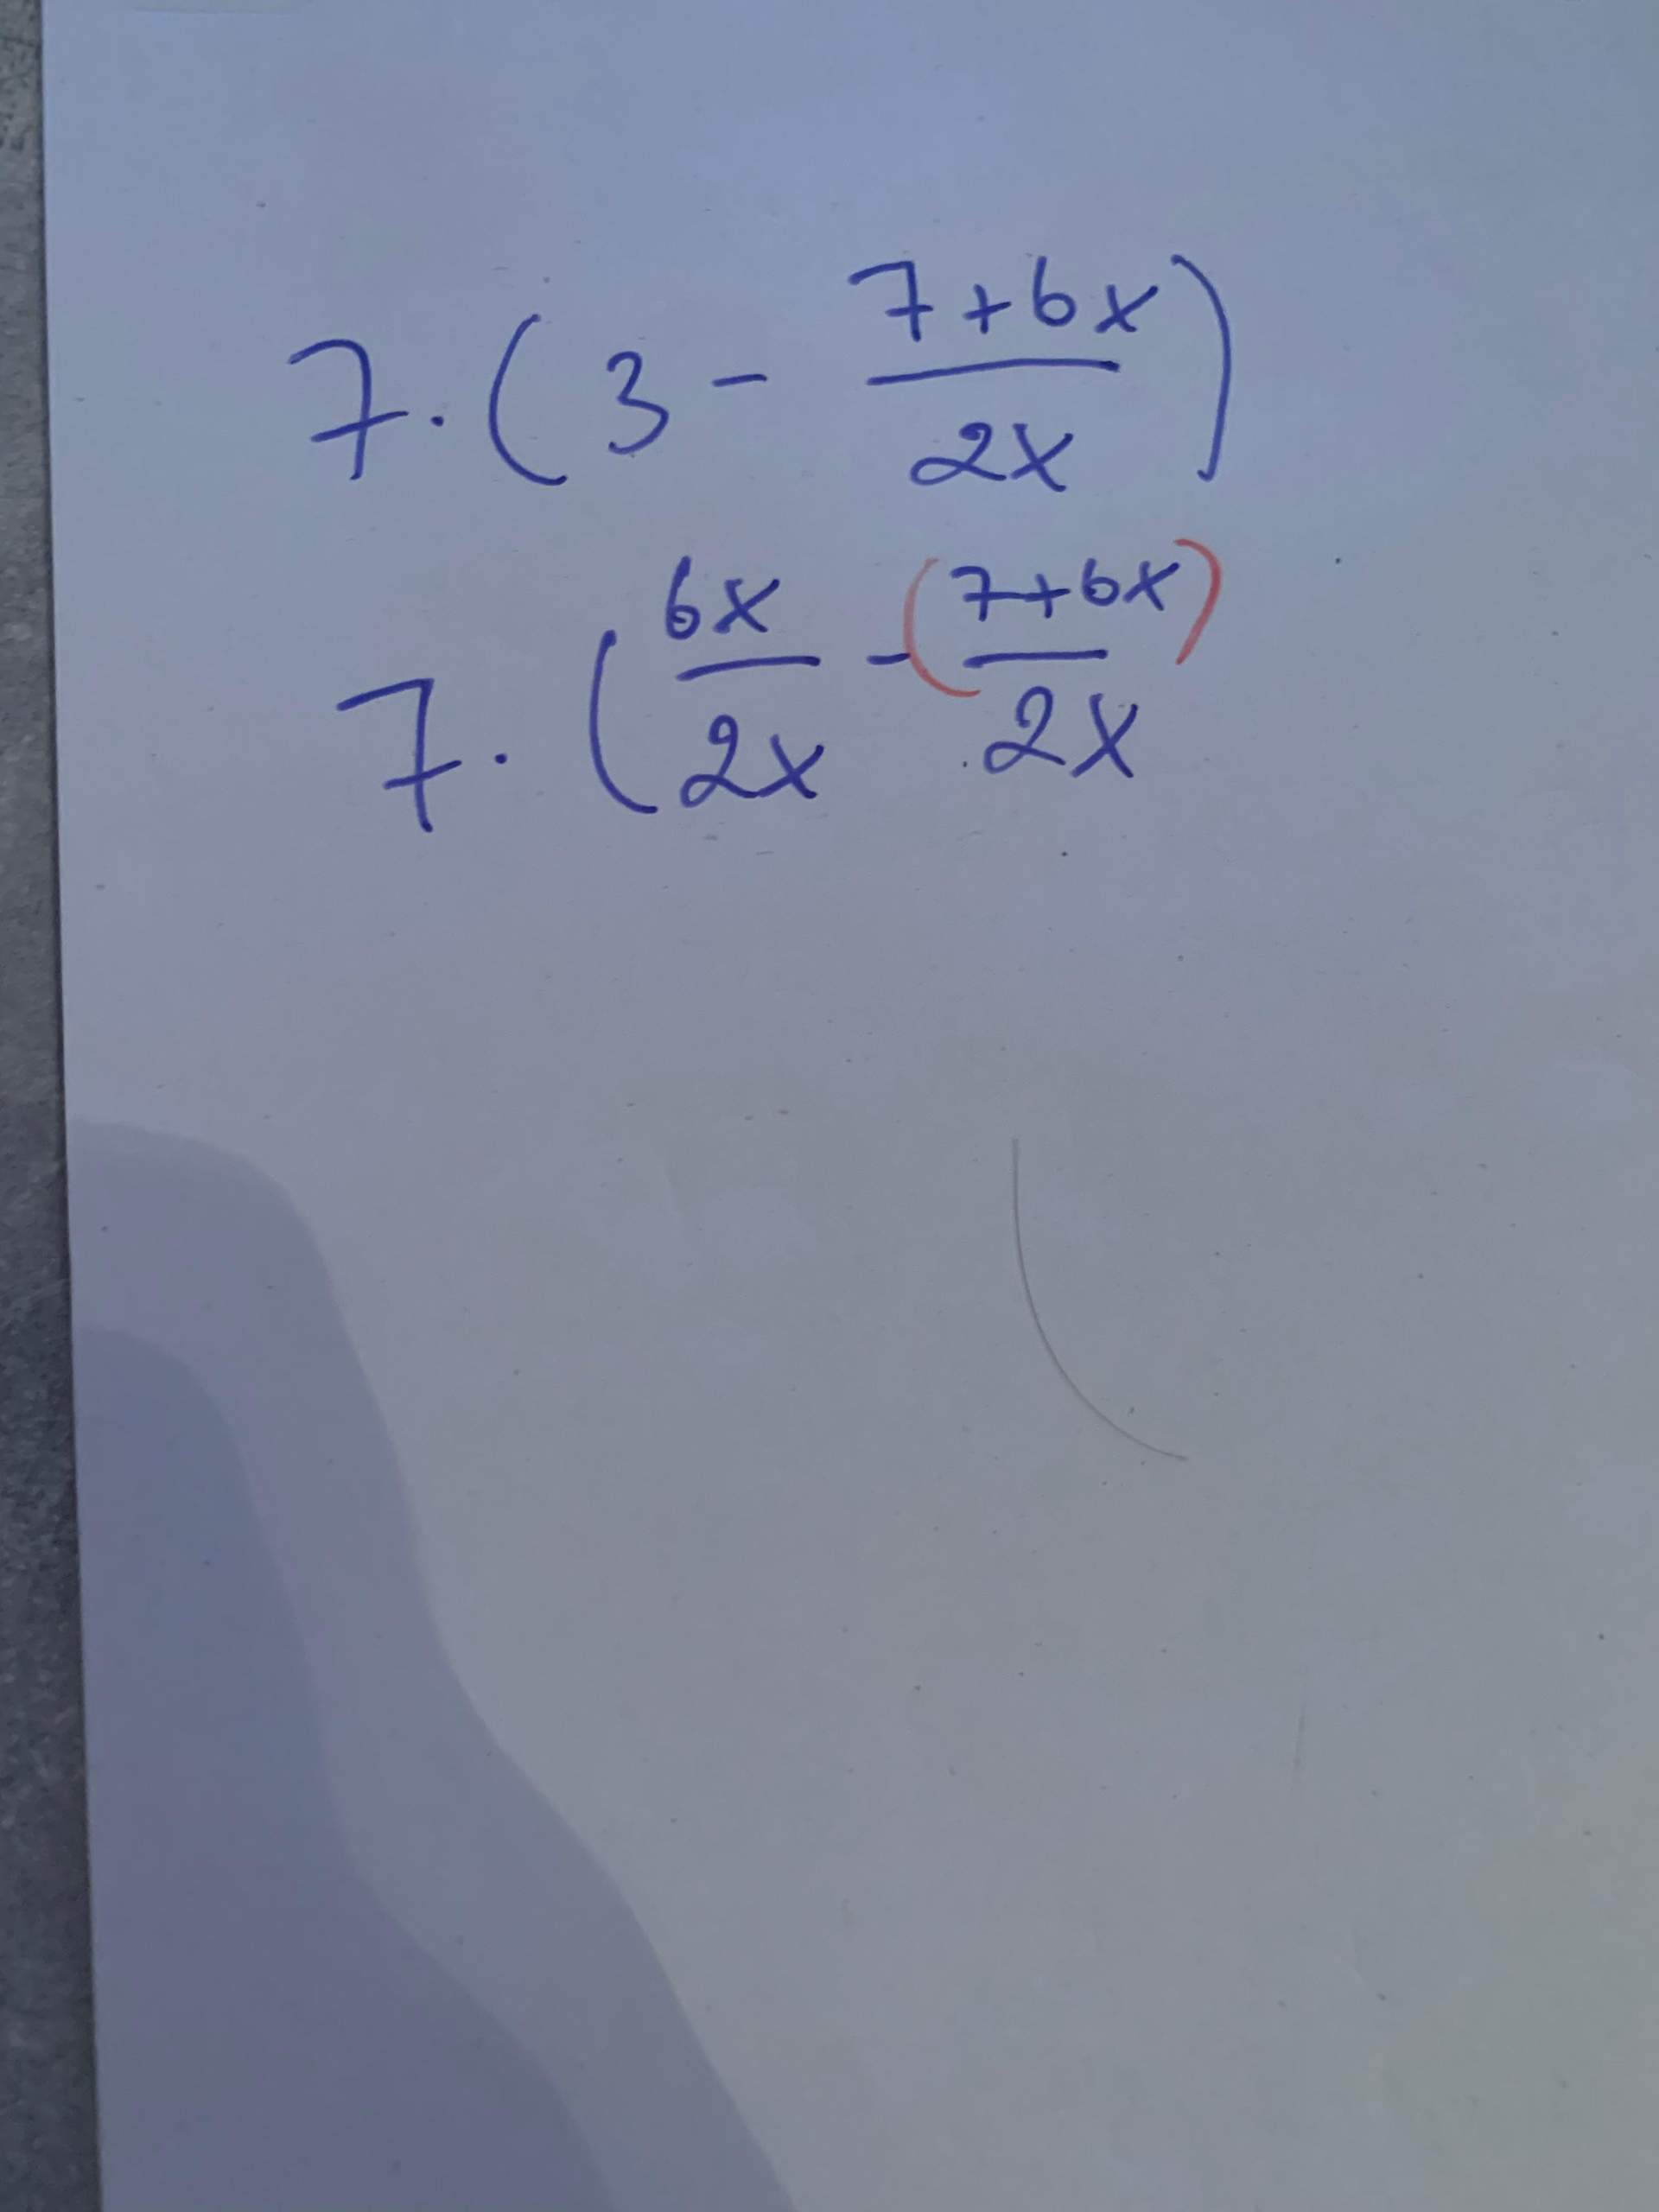 7 · ( 3 - \frac{7+6x}{2x} )
7 · ( \frac{6x}{2x} - \frac{(7+6x)}{2x}